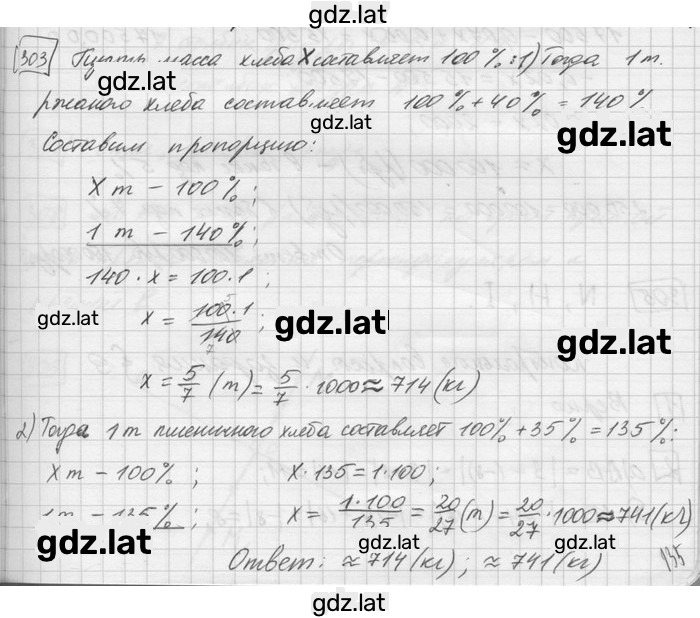 gdz.lat
303 Пусть масса хлеба X составляет 100%: 1) Тогда 1 т.
gdz.lat
ржаного хлеба составляет 100% + 40% = 140%.
gdz.lat
gdz.lat
Составим пропорцию:
X т – 100%;
1 т – 140%;
140 · x = 100 · 1;
gdz.lat
x = 100·1/140;
gdz.lat
gdz.lat
x = 5/7 (т) = 5/7 · 1000 ≈ 714 (кг)
2) Тогда 1 т пшеничного хлеба составляет 100% + 35% = 135%:
X т – 100%; X · 135 = 1 · 100;
1 т – 135%; X = 1·100/135 = 20/27 (т) = 20/27 · 1000 ≈ 741 (кг)
gdz.lat
gdz.lat
gdz.lat
Ответ: ≈ 714 (кг); ≈ 741 (кг)
135
gdz.lat